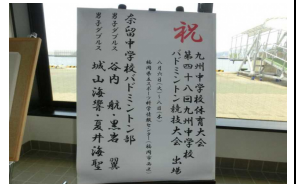 祝
九州中学校体育大会
第四十八回九州中学校
バドミントン競技大会 出場
八月六日(火)~八日(木)
奈留中学校バドミントン部
男子ダブルス
谷内 航・黒岩 翼
男子ダブルス
城山海響・夏井海聖